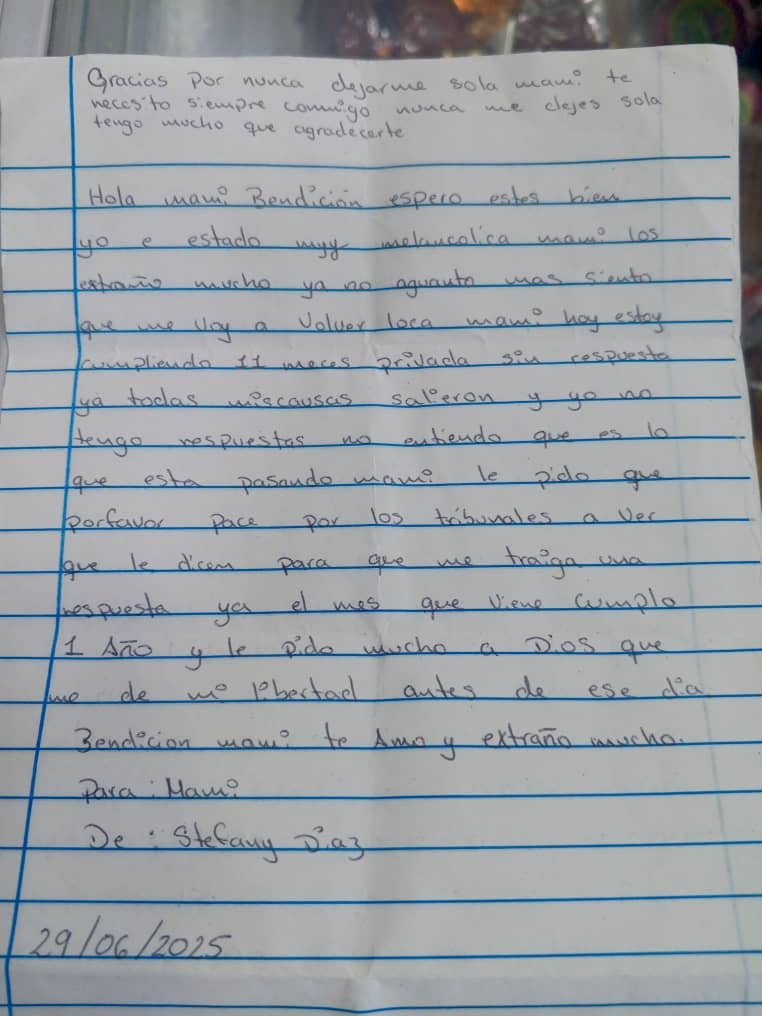 Gracias por nunca dejarme sola mami te
necesito siempre conmigo nunca me dejes sola
tengo mucho que agradecerte
Hola mami Bendición espero estes bien
yo e estado myy melancolica mami los
extraño mucho ya no aguanto mas siento
que me voy a volver loca mami hoy estoy
cumpliendo 11 meces privada sin respuesta
ya todas miscausas salieron y yo no
tengo respuestas no entiendo que es lo
que esta pasando mami le pido que
porfavor pace por los tribunales a ver
que le dicen para que me traiga una
respuesta ya el mes que viene cumplo
1 Año y le pido mucho a Dios que
me de mi libertad antes de ese dia
Bendicion mami te Amo y extraño mucho.
Para: Mami
De: Stefany Diaz
29/06/2025